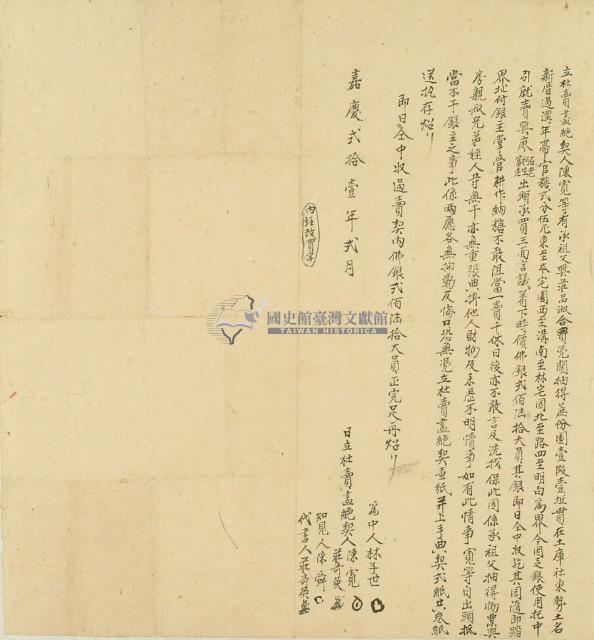 立杜賣盡絕契人陳寬等有承祖父與莊品淑合買荒閒抽得應份園壹段壹坵貫在土庫社東勢土名
新厝過溝年帶官穗弍分伍厘東至本宅園西至溝南至林宅園北至路四至明白為界今因乏銀使用托中
引就賣與廖出頭承買三面言議着下時價佛銀弍佰陸拾大員其銀即日仝中收訖其園隨即踏
界址付銀主掌管耕作納穗不敢阻當一賣千休日後亦不敢言及洗找保此園係承祖父抽得物業與
房親叔兄弟姪人等無干亦無重張典掛他人財物及來歷不明情事如有此情事寬等自出頭抵
當不干銀主之事此係兩愿各無抑勒反悔口恐無憑立杜賣盡絕契壹紙并上手典契弍紙共叁紙
送執存炤
即日仝中收過賣契內佛銀弍佰陸拾大員正完足再炤
嘉慶弍拾壹年弍月
內註改買字
為中人林子世
日立杜賣盡絕契人陳寬
莊奇英
知見人陳舜
代書人莊奇英
國史館臺灣文獻館
TAIWAN HISTORICA